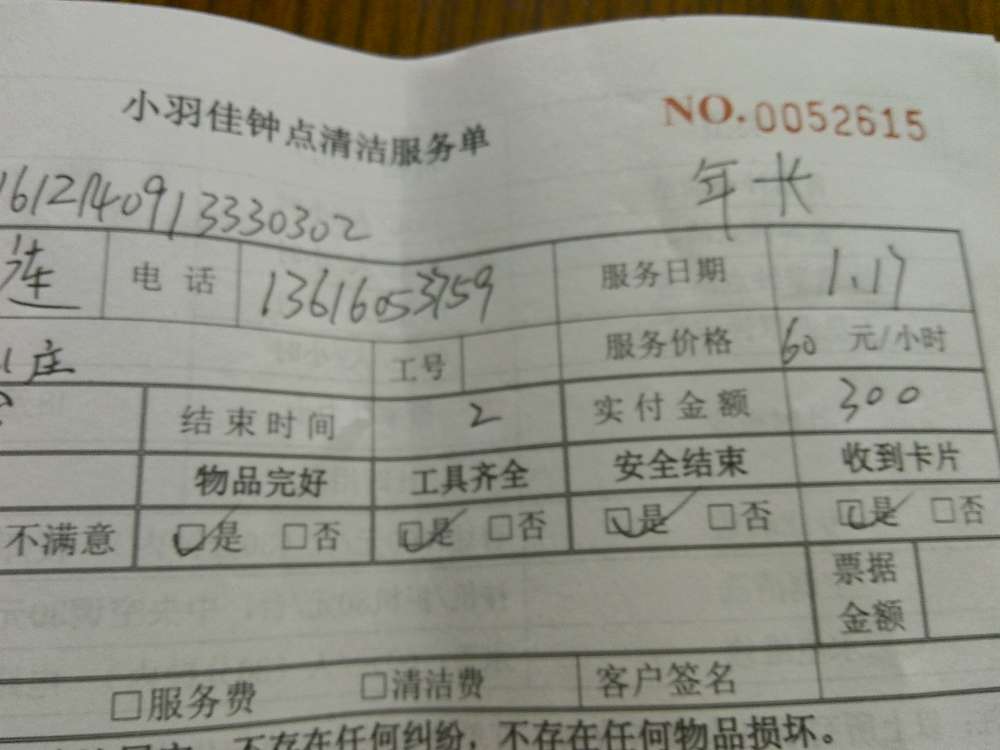 小羽佳钟点清洁服务单 NO.0052615
年长
1612140913330302
莲 电话 13616053759 服务日期 1.17
庄 工号 服务价格 60 元/小时
结束时间 2 实付金额 300
物品完好 工具齐全 安全结束 收到卡片
不满意 □是 □否 □是 □否 □是 □否 □是 □否
票据
金额
□服务费 □清洁费 客户签名
不存在任何纠纷,不存在任何物品损坏。